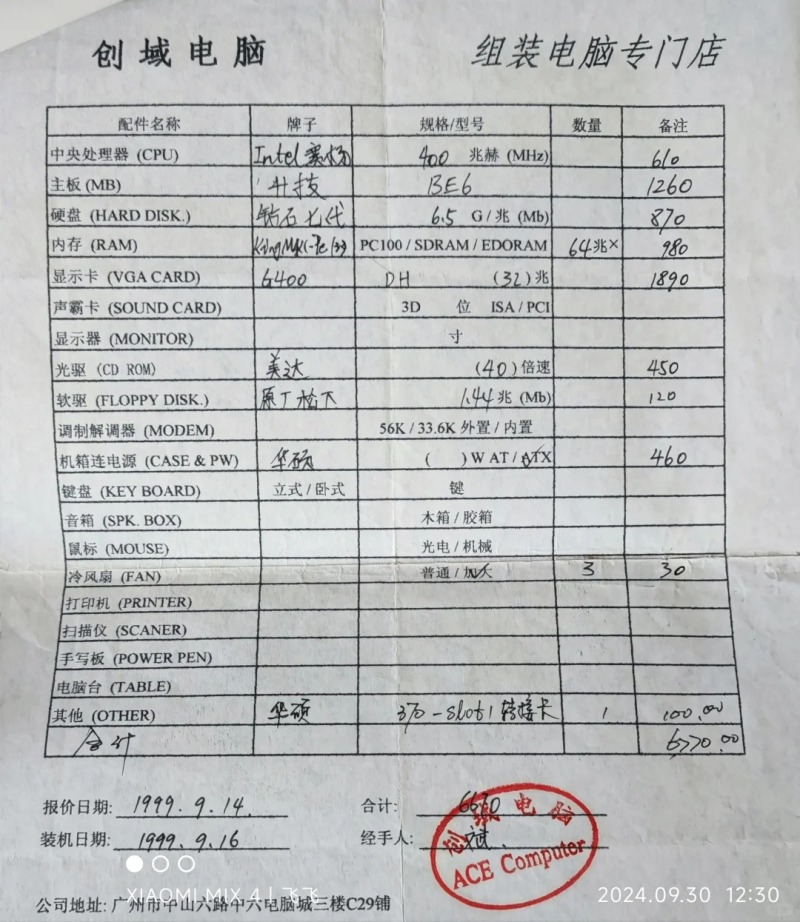 创域电脑 组装电脑专门店
配件名称 牌子 规格/型号 数量 备注
中央处理器 (CPU) Intel 赛扬 400 兆赫 (MHz) 610
主板 (MB) 升技 BE6 1260
硬盘 (HARD DISK.) 钻石七代 6.5 G/兆 (Mb) 870
内存 (RAM) PC100 / SDRAM / EDORAM 64兆× 980
显示卡 (VGA CARD) G400 DH (32) 兆 1890
声霸卡 (SOUND CARD) 3D 位 ISA / PCI
显示器 (MONITOR) 寸
光驱 (CD ROM) 美达 (40) 倍速 450
软驱 (FLOPPY DISK.) 原厂 1.44 兆 (Mb) 120
调制解调器 (MODEM) 56K / 33.6K 外置 / 内置
机箱连电源 (CASE & PW) 华硕 ( ) W AT / ATX 460
键盘 (KEY BOARD) 立式 / 卧式 键
音箱 (SPK. BOX) 木箱 / 胶箱
鼠标 (MOUSE) 光电 / 机械
冷风扇 (FAN) 普通 / 加大 3 30
打印机 (PRINTER)
扫描仪 (SCANER)
手写板 (POWER PEN)
电脑台 (TABLE)
其他 (OTHER) 华硕 370-Slot1 转接卡 1 100.00
合计 6770.00
报价日期: 1999.9.14. 合计: 6670
装机日期: 1999.9.16 经手人:
创域电脑
ACE Computer
XIAOMI MIX 4 | 飞飞 2024.09.30 12:30
公司地址: 广州市中山六路中六电脑城三楼C29铺